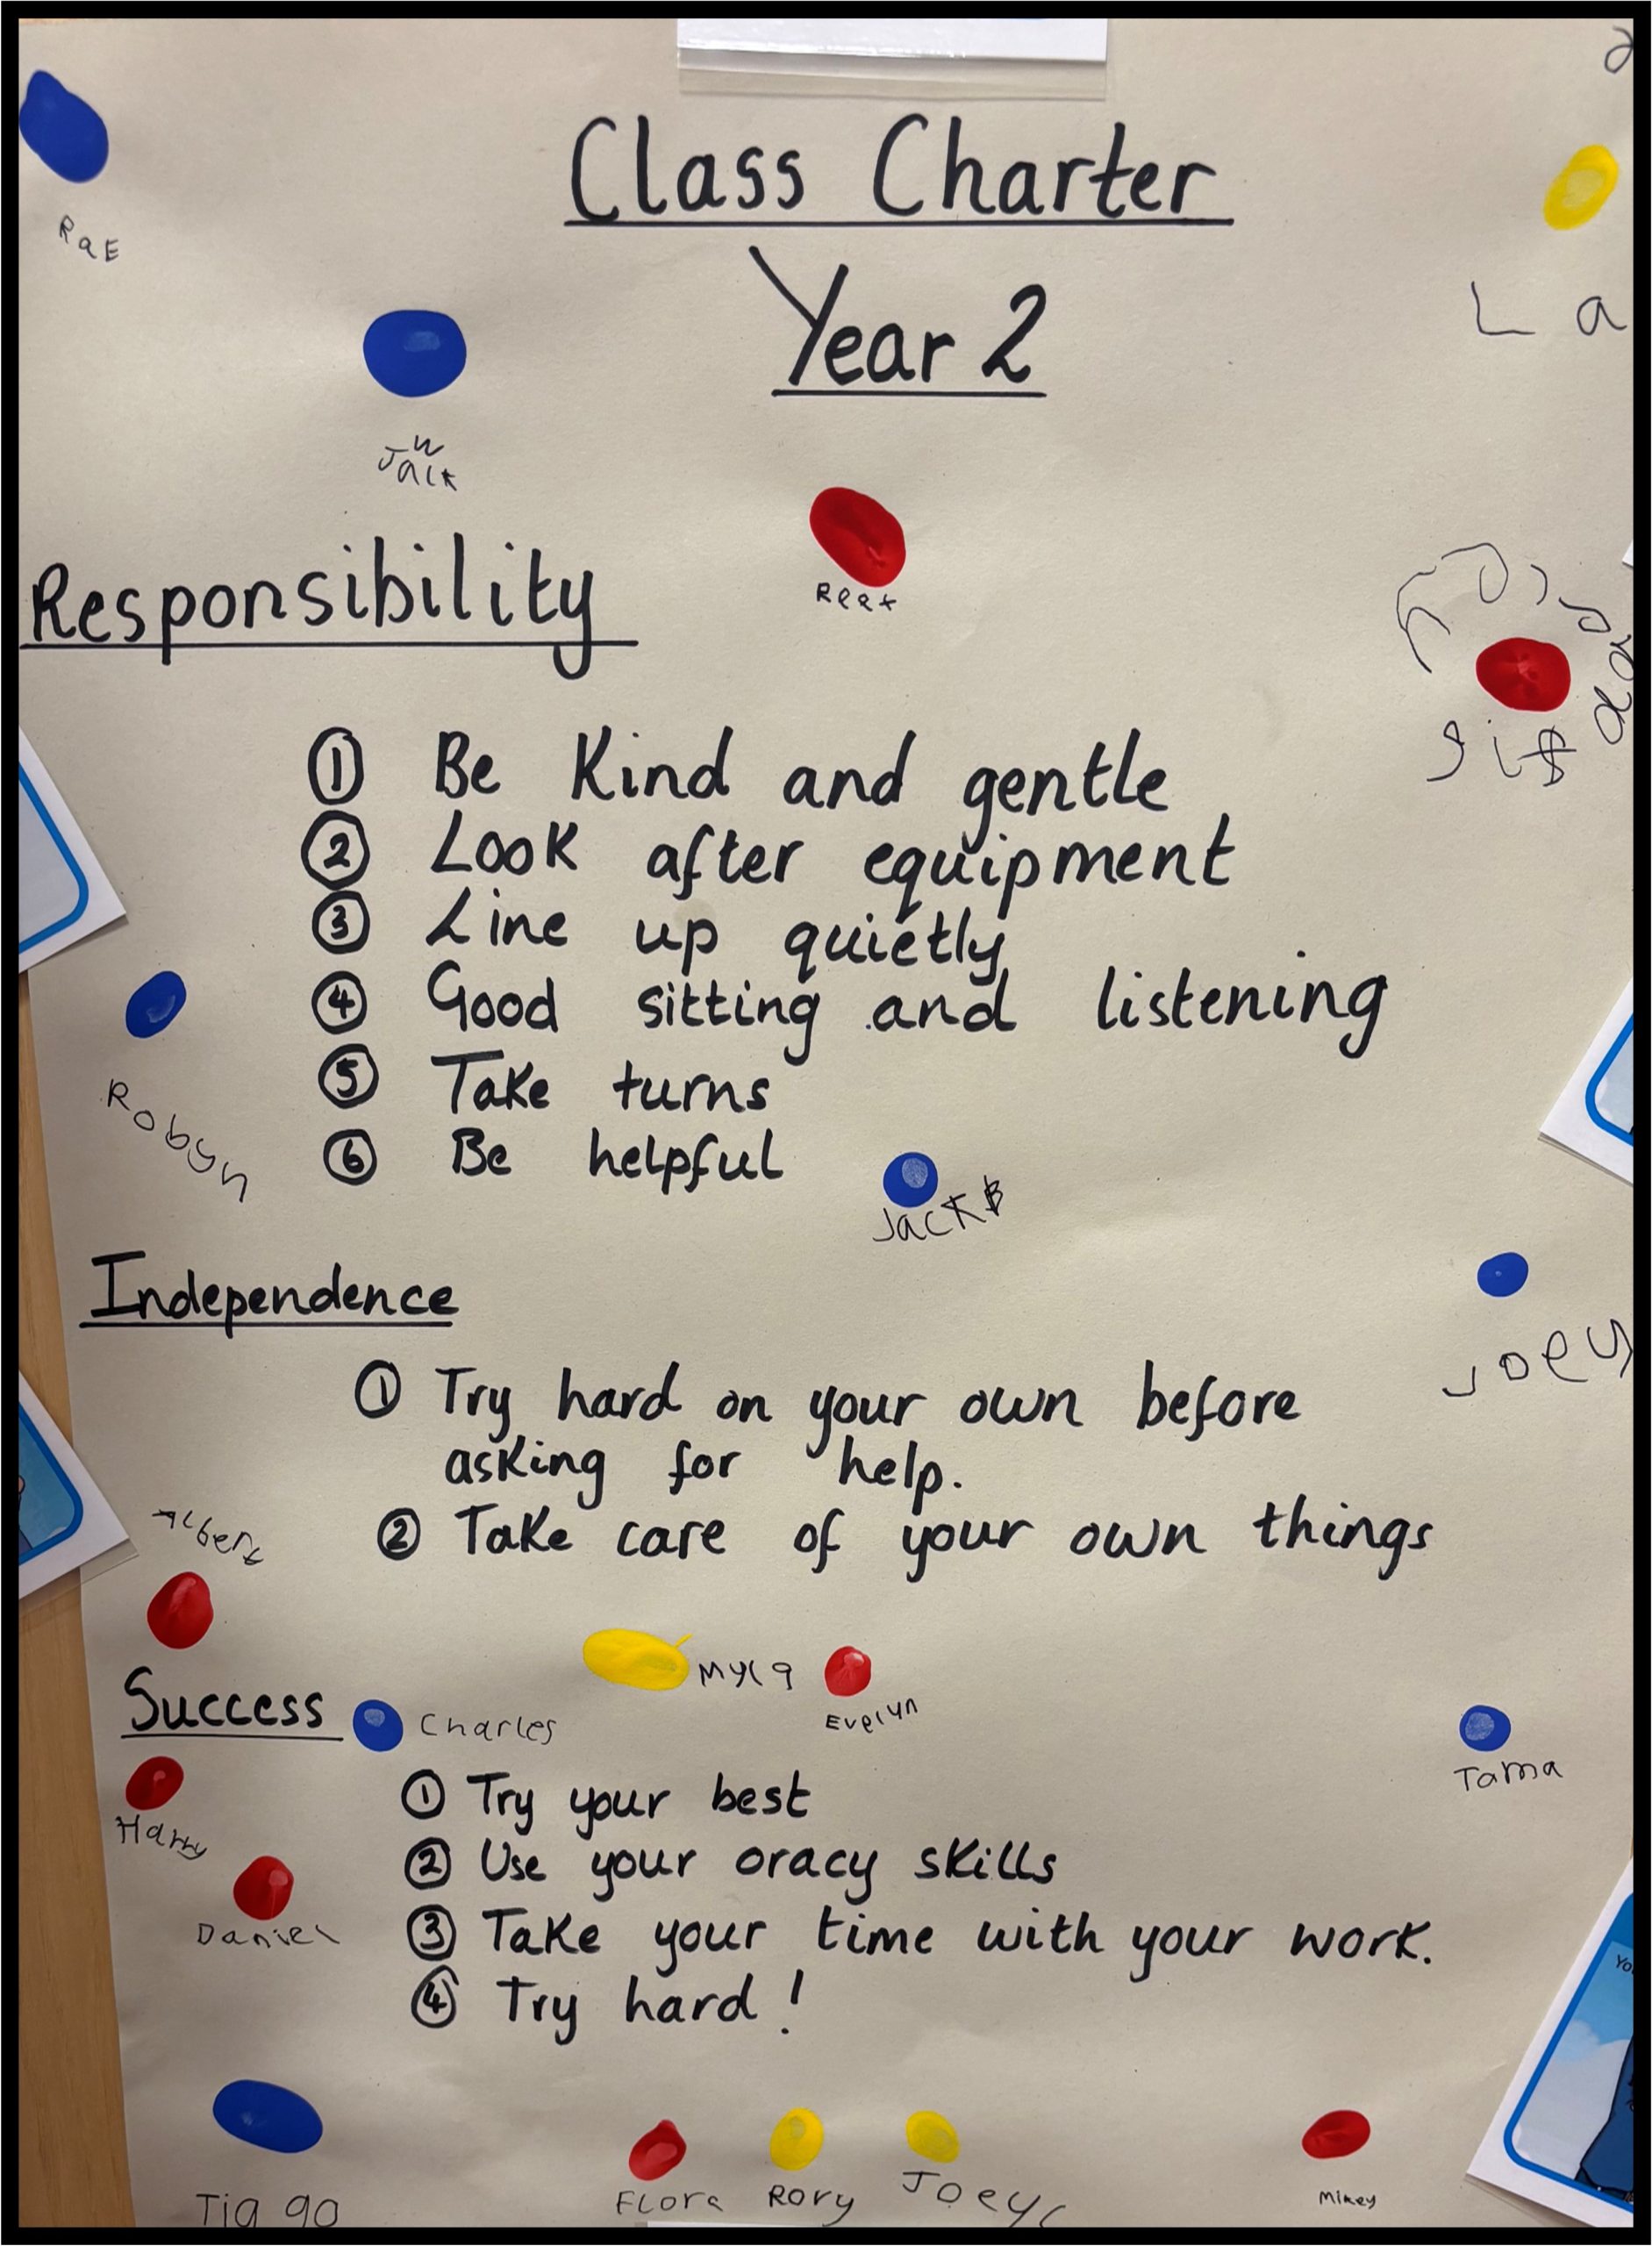 Class Charter
Year 2
RaE
L a
W
Jack
Responsibility
① Be Kind and gentle
② Look after equipment
③ Line up quietly
④ Good sitting and listening
⑤ Take turns
⑥ Be helpful
Robyn
JackB
Joey
Independence
① Try hard on your own before
asking for help.
② Take care of your own things
Albert
Success
Charles
Evelyn
Tama
Harry
① Try your best
② Use your oracy skills
Daniel
③ Take your time with your work.
④ Try hard!
Flora
Rory
Mikey
Yo